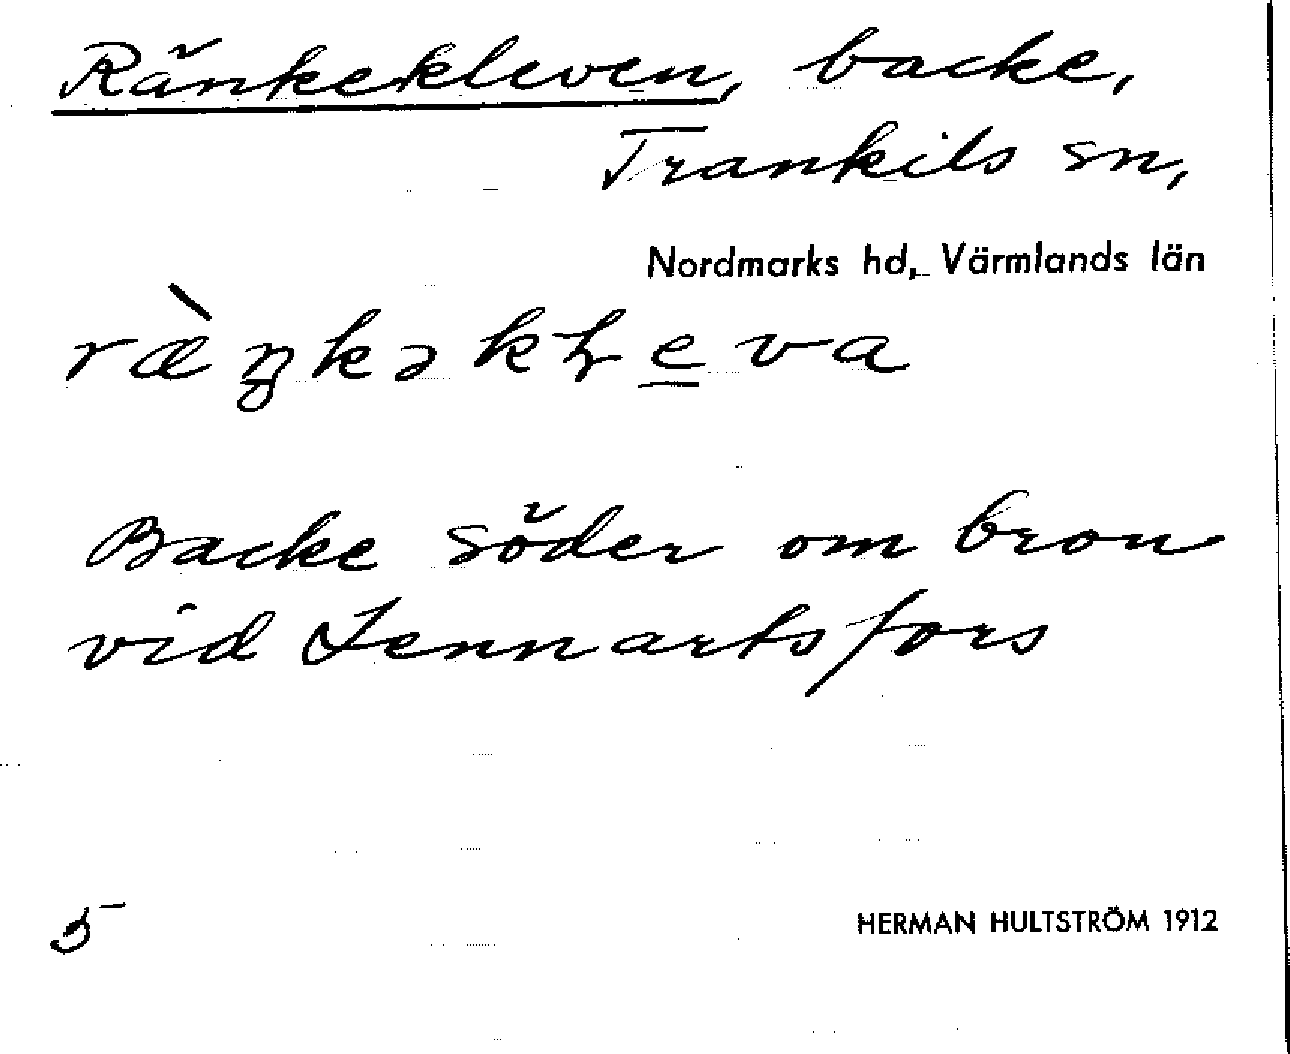 Ränkekleven, backe,
Trankils sn,
Nordmarks hd, Värmlands län
ræ̀ŋkəkɫeva
Backe söder om bron
vid Lennartsfors
5
HERMAN HULTSTRÖM 1912